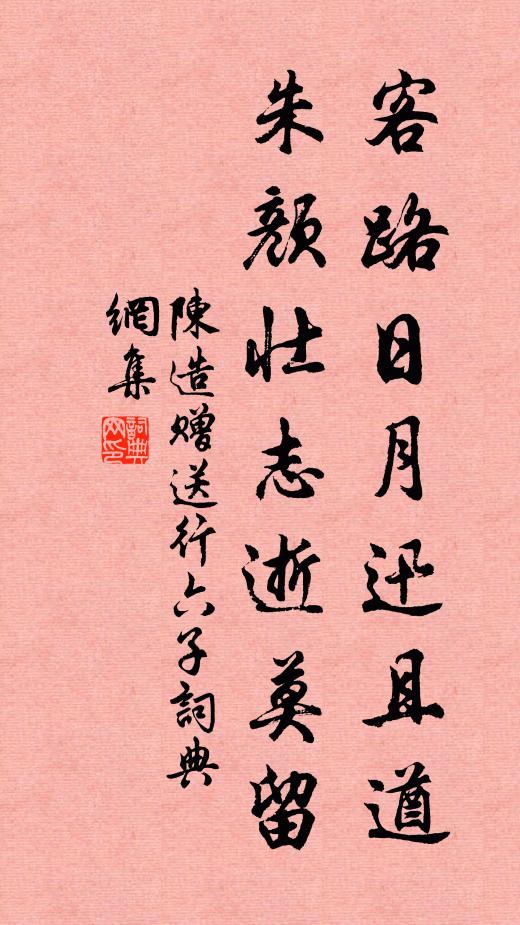 客路日月迅且遒
朱顏壯志逝莫留
陳造贈送行六子詞典
網集
詞典
网印